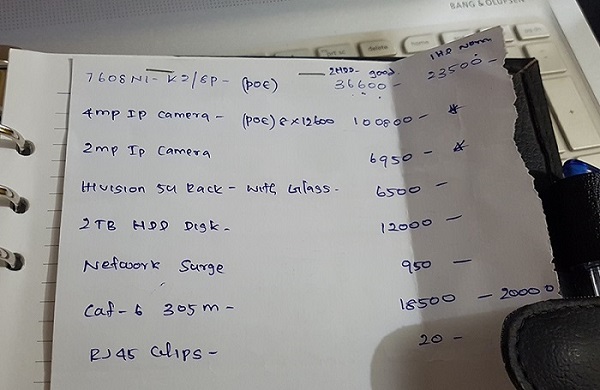 BANG & OLUFSEN
delete
home
end
2HDD - good
1HD Norm
7608NI - K2/8P - (POE) 36600 - 23500 -
4mp Ip camera - (POE) 8x12600 100800 - *
2mp Ip Camera 6950 - *
Hivision 5U Rack - with Glass - 6500 -
2TB HDD Disk - 12000 -
Network Surge 950 -
Cat-6 305m - 18500 - 20000
RJ45 Clips - 20 -